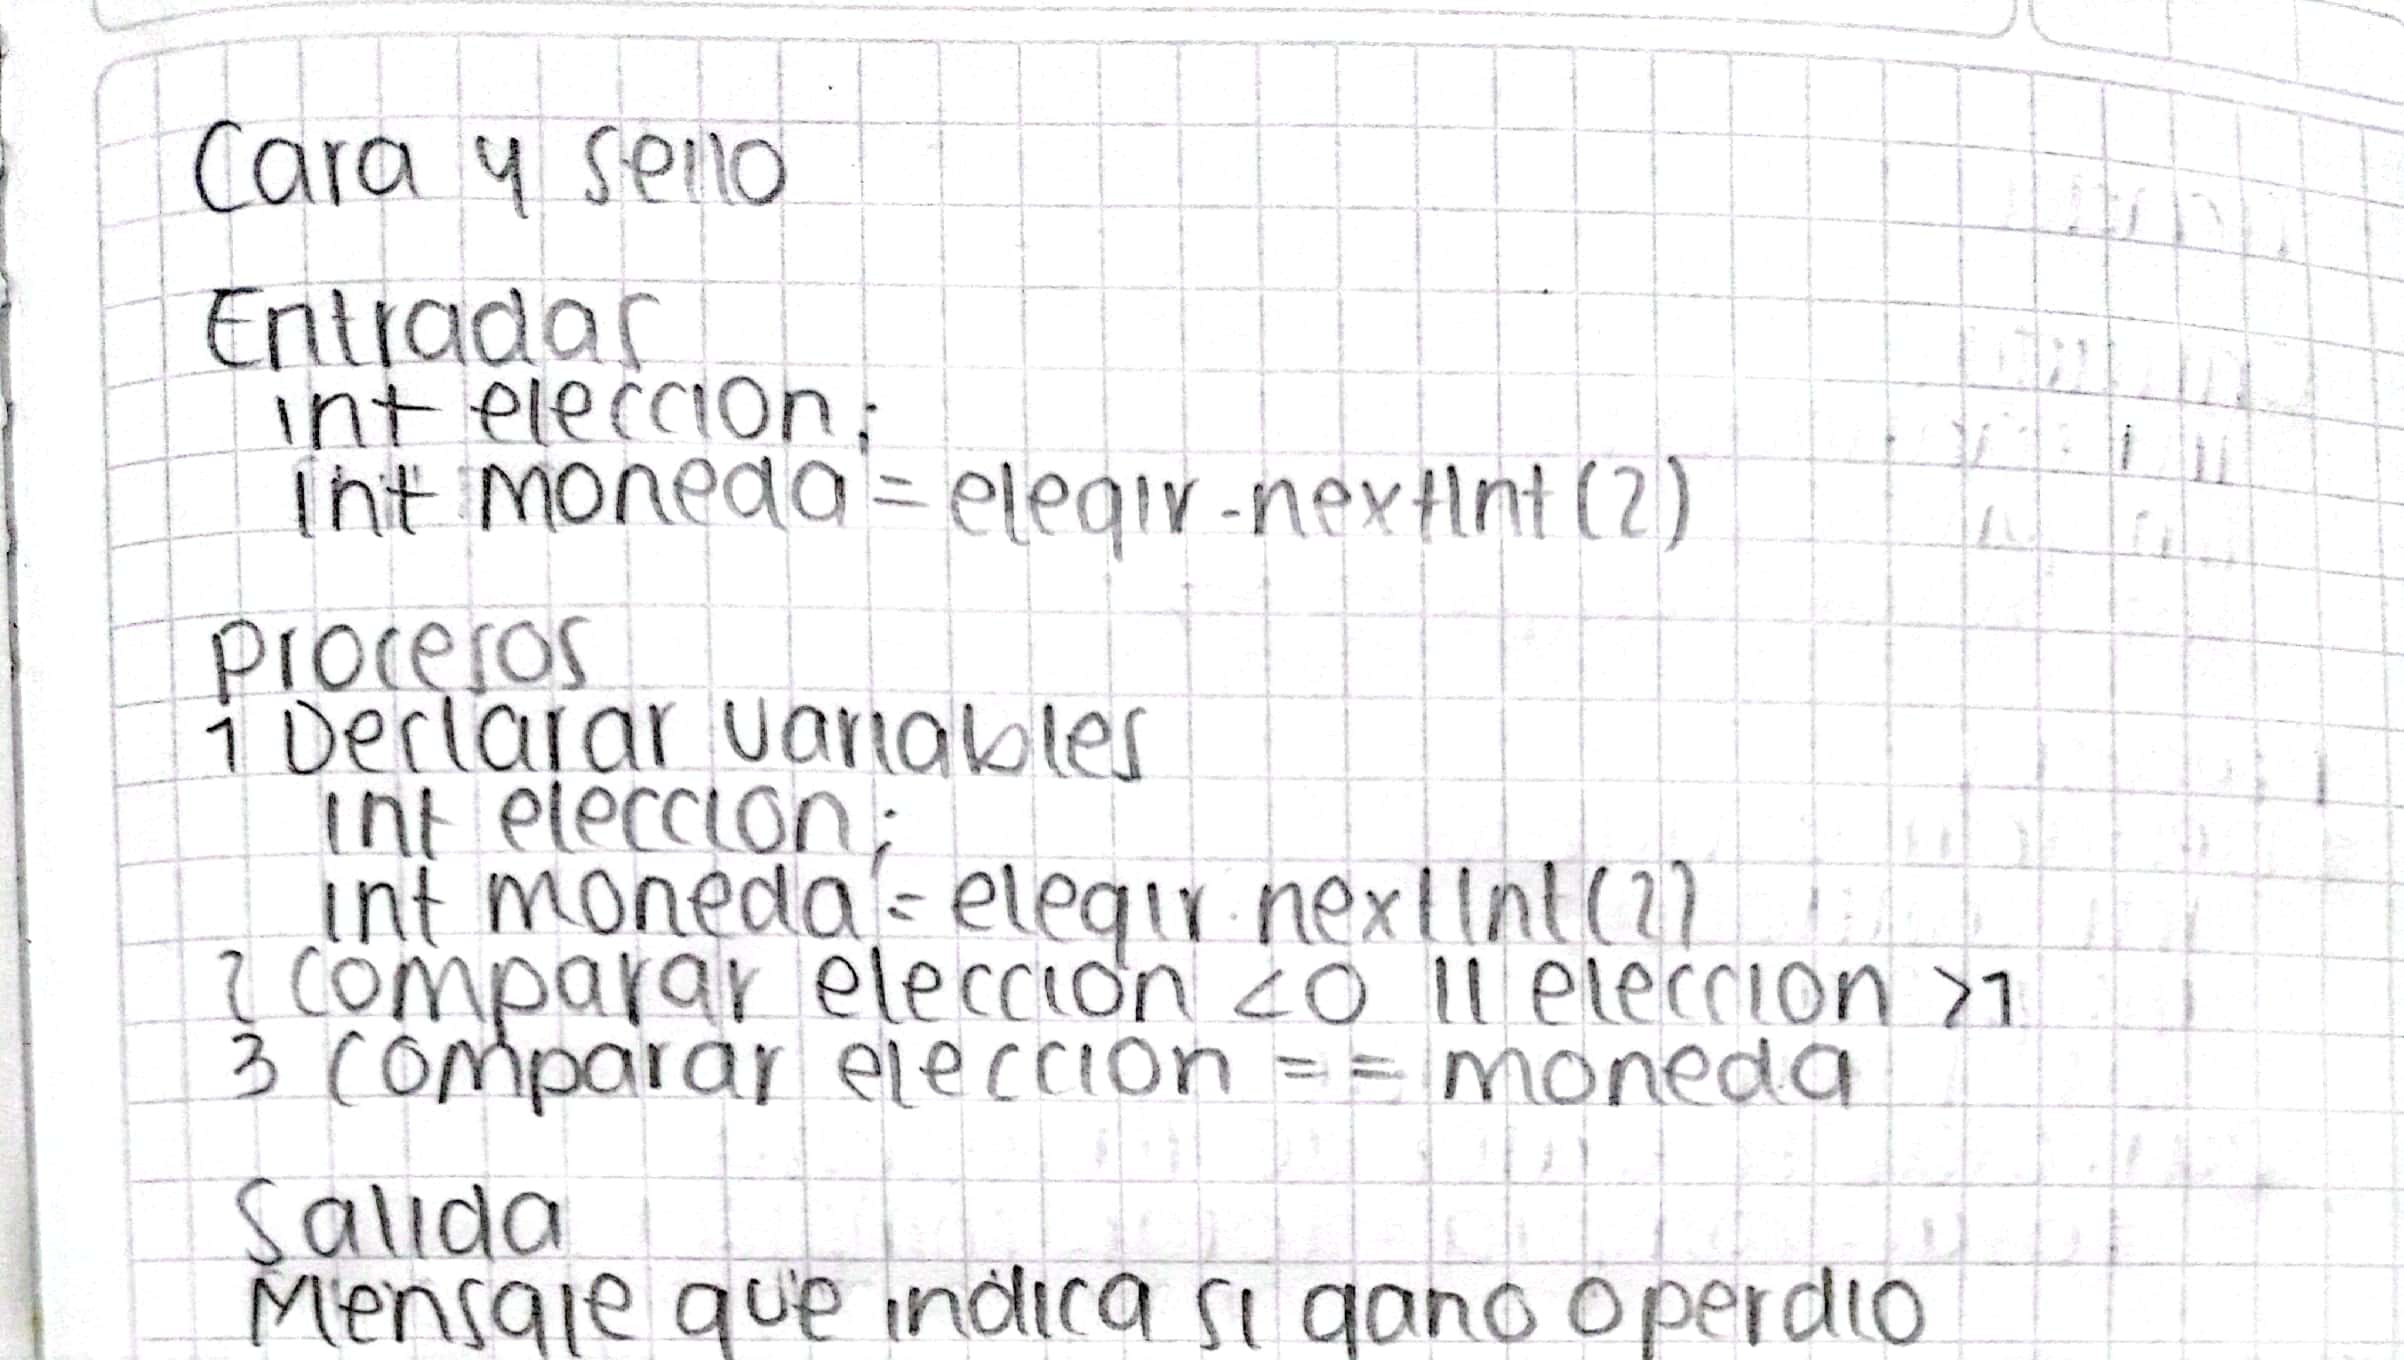 Cara y sello
Entradas
int eleccion;
int moneda = elegir.nextInt(2)
procesos
1 Declarar variables
int eleccion;
int moneda = elegir.nextInt(2)
2 comparar eleccion <0 || eleccion >1
3 comparar eleccion == moneda
Salida
Mensaje que indica si gano o perdio